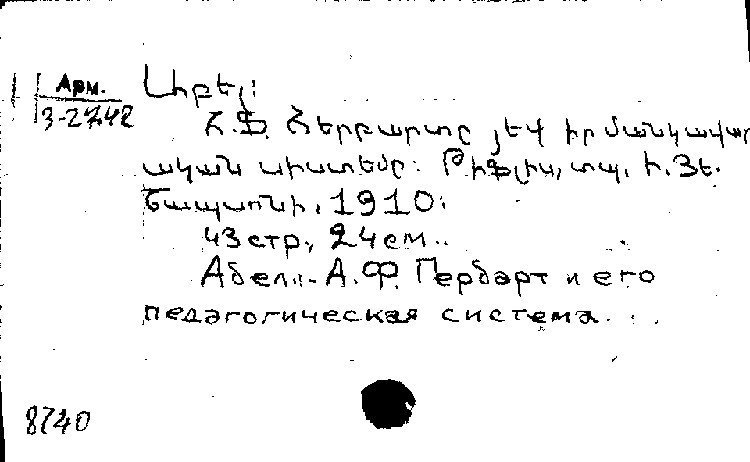 Арм.
3-2742
Աբել:
Հ.Ֆ. Հերբարտը յեվ իր մանկավար
ական սիստեմը: Թիֆլիս, տպ. Ի. Յե.
Շապառնի, 1910:
43 стр., 24 см..
Абел.- А.Ф. Гербарт и его
педагогическая система.
8740